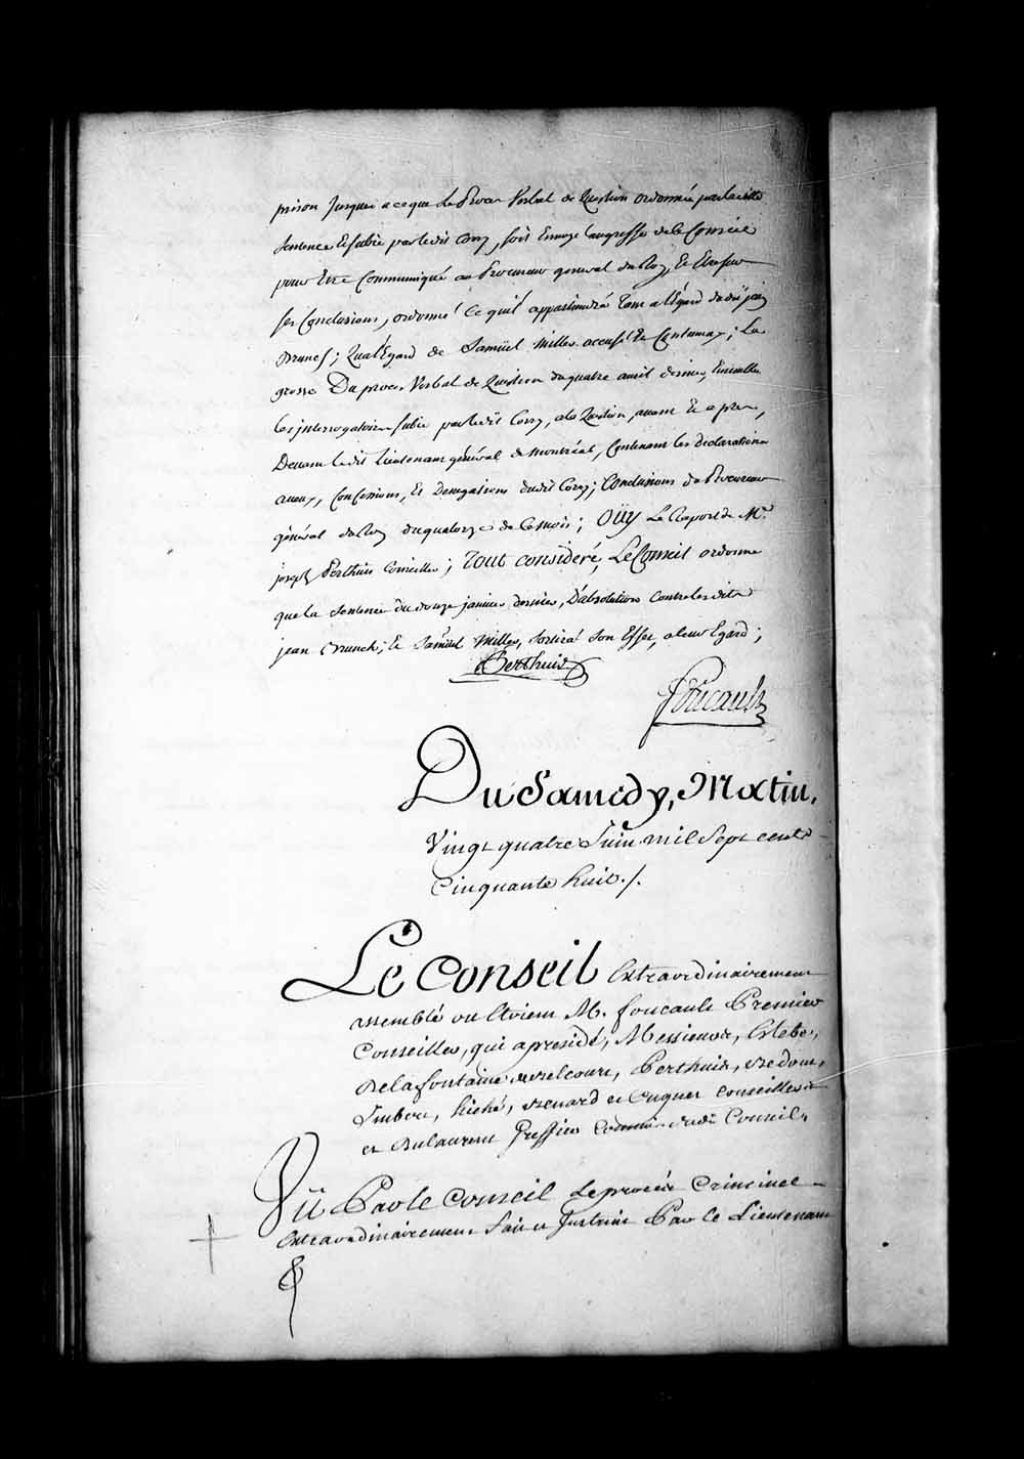 prison jusques a ce que le Proces Verbal de Question ordonnée par laditte
Sentence Et subie par ledit Cory, soit Envoyé au greffe de le Conseil
pour Etre Communiqué au Procureur general du Roy, Et Eu sur
ses Conclusions, ordonné Ce qu'il appartiendra tant a l'égard dudit jean
Brunch; Qual'Egard de Samüel Milles accusé Et Contumax; La
grosse Du proces Verbal de Question du quatre avril dernier, Ensemble
les jnterrogatoires subis par ledit Cory, ala Question, avant Et apres,
Devant ledit Lieutenant général de Montréal, Contenant les declarations
aveux, Confessions, Et Denegations dudit Cory; Conclusions du Procureur
général du Roy du quatorze de Ce mois; Oüy Le Raport de Mr.
joseph Perthuis Conseiller; Tout consideré, Le Conseil ordonne
que la Sentence du douze janvier dernier, D'absolution Contre lesdits
jean Brunch; Et Samüel Milles, sortira Son Effet, aleur Egard;
Perthuis
Foucault
Du Samedy, Matin,
Vingt quatre Juin mil Sept cents
Cinquante huit./.
Le Conseil Extraordinairement
assemblé ou Etoient M. foucault Premier
Conseiller, qui a presidé, Messieurs, Estebe,
Delafontaine de Belcour, Perthuis, Bedout,
Imbert, hiché, Benard et Cugnet Conseillers
et Dulaurent Greffier Commis dudit Conseil.
Vü Par le Conseil le procés Criminel
Extraordinairement fait et Instruit Par le Lieutenant